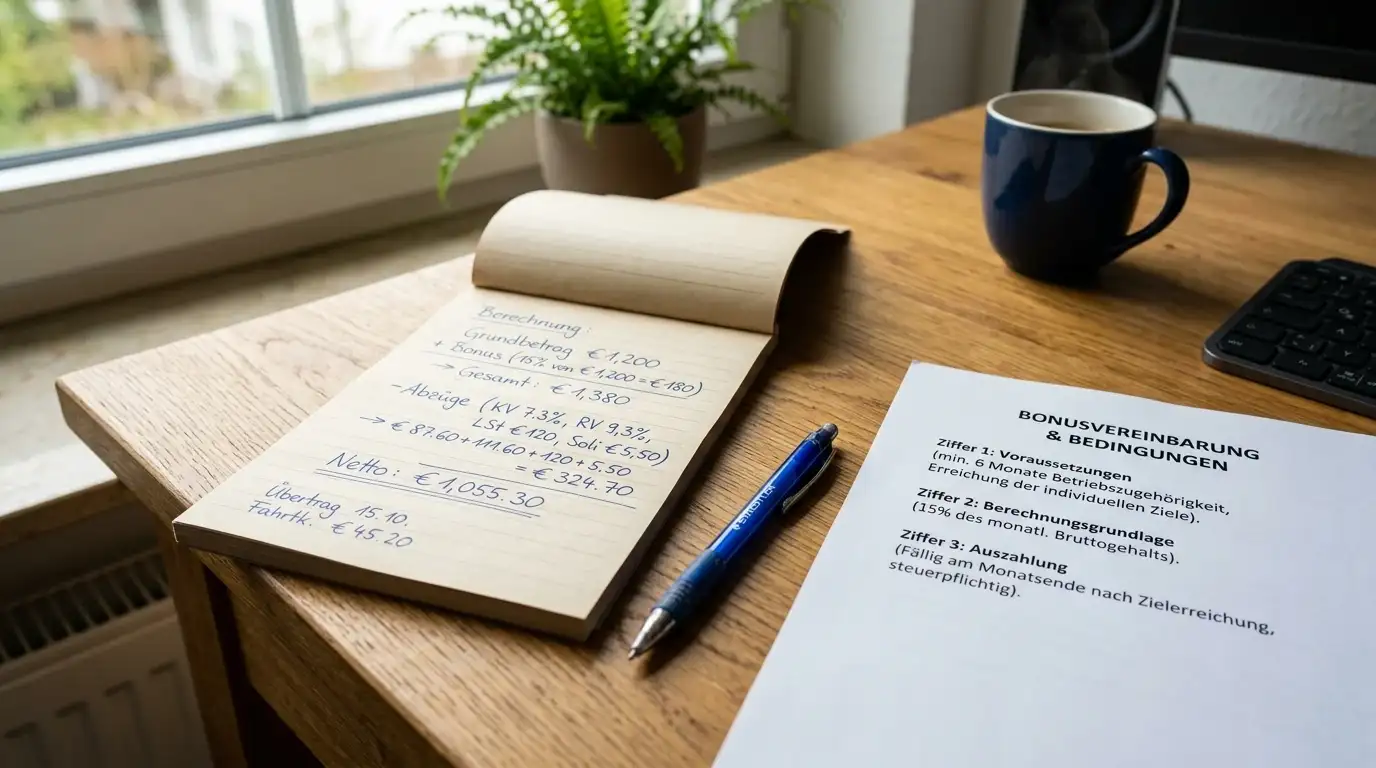 Berechnung:
Grundbetrag € 1,200
+ Bonus (15% von € 1,200 = € 180)
→ Gesamt: € 1,380
- Abzüge (KV 7.3%, RV 9,3%,
LSt € 120, Soli € 5,50)
→ € 87.60 + 111.60 + 120 + 5.50
= € 324.70
Netto: € 1,055.30
Übertrag 15.10.
Fahrtk. € 45.20
STAEDTLER
BONUSVEREINBARUNG
& BEDINGUNGEN
Ziffer 1: Voraussetzungen
(min. 6 Monate Betriebszugehörigkeit,
Erreichung der individuellen Ziele).
Ziffer 2: Berechnungsgrundlage
(15% des monatl. Bruttogehalts).
Ziffer 3: Auszahlung
(Fällig am Monatsende nach Zielerreichung,
steuerpflichtig).